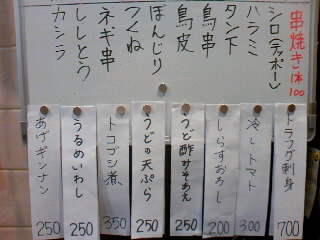 串焼き 1本100
シロ(テッポー)
ハラミ
タン下
鳥串
鳥皮
ぼんじり
つくね
ネギ串
ししとう
カシラ
トラフグ刺身 700
冷しトマト 300
しらすおろし 200
うど酢みそあえ 250
うどの天ぷら 250
トコブシ煮 350
うるめいわし 250
あげギンナン 250